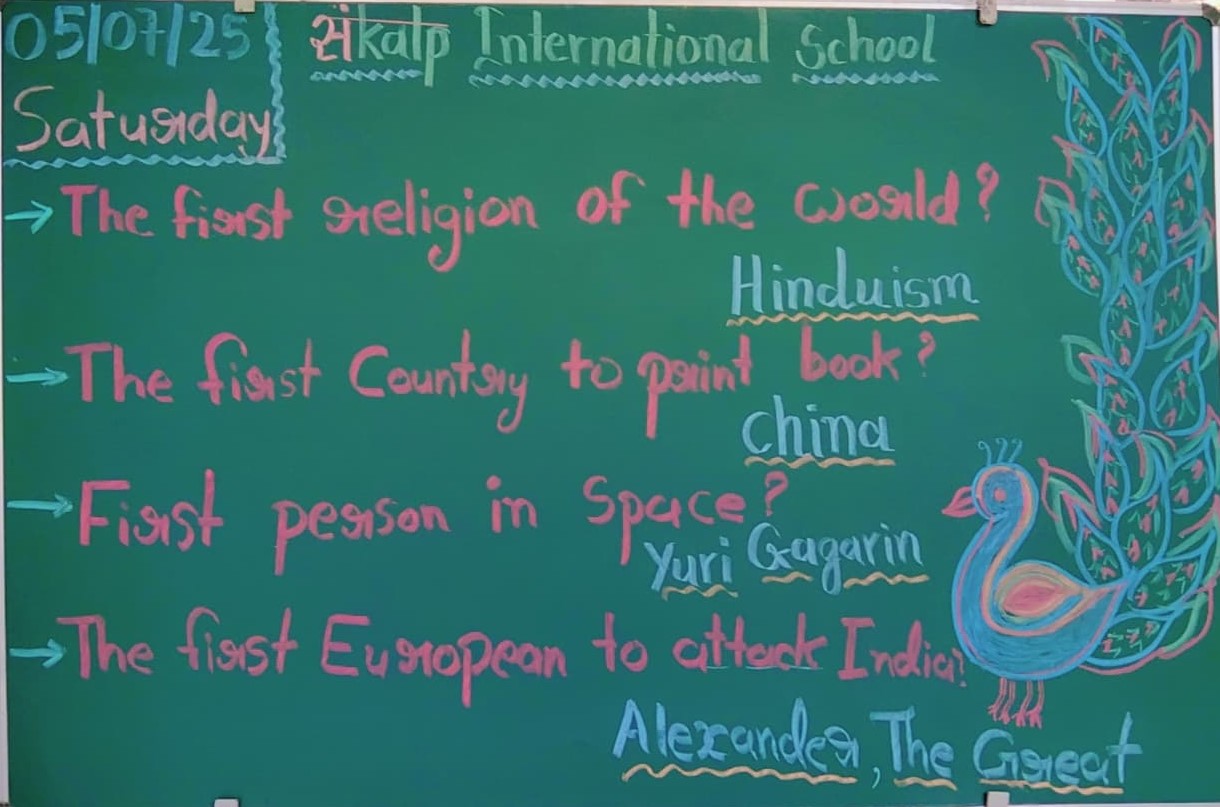 05/07/25 संkalp International School
Saturday
→ The first religion of the world?
Hinduism
→ The first Country to print book?
China
→ First person in Space?
Yuri Gagarin
→ The first European to attack India?
Alexander, The Great